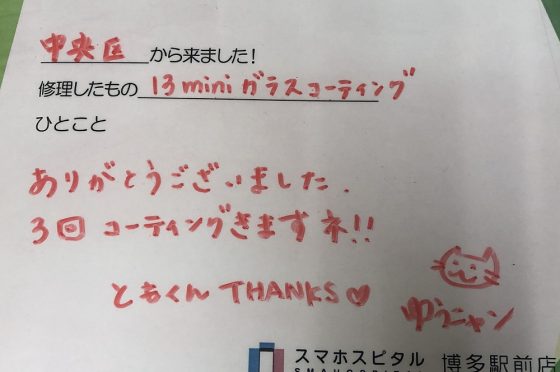 中央区 から来ました!
修理したもの 13mini ガラスコーティング
ひとこと
ありがとうございました.
3回 コーティングきますネ!!
ともくん THANKS♡
ゆうニャン
スマホスピタル 博多駅前店